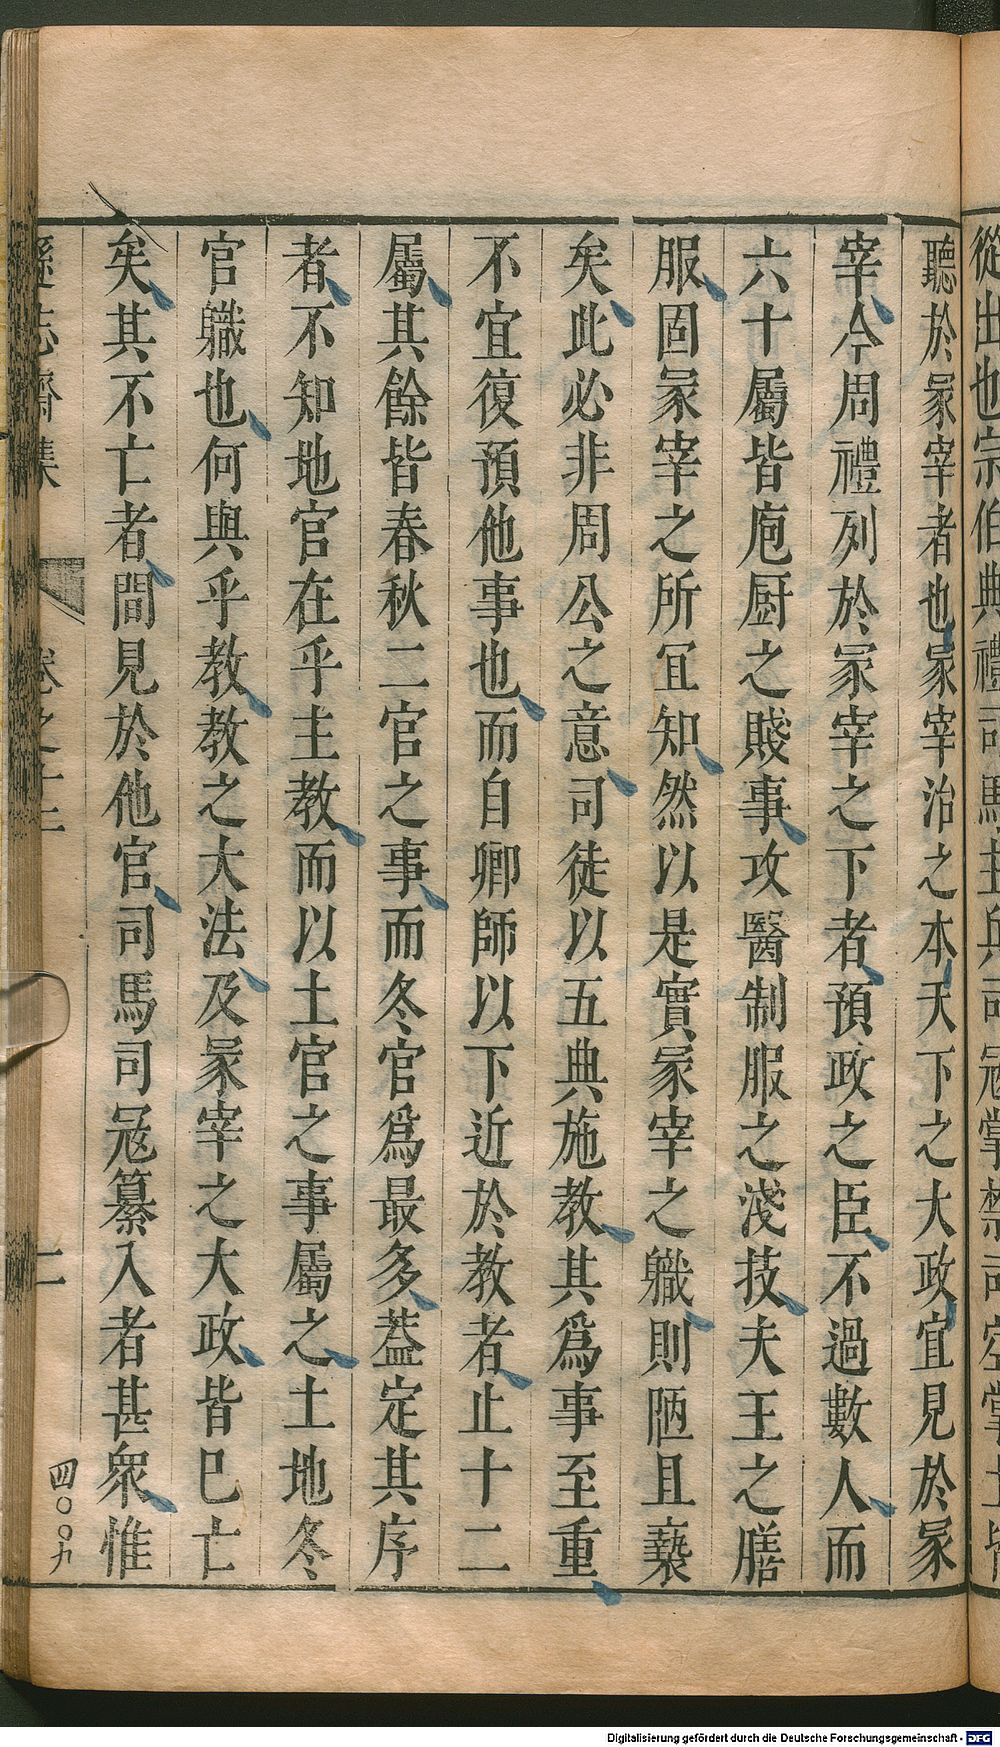 從出也宗伯典禮司馬主兵司冦掌禁司空掌土皆
聽於冢宰者也冢宰治之本天下之大政宜見於冢
宰今周禮列於冢宰之下者預政之臣不過數人而
六十屬皆庖厨之賤事攻醫制服之淺技夫王之膳
服固冢宰之所冝知然以是實冢宰之職則陋且䙝
矣此必非周公之意司徒以五典施教其爲事至重
不宜復預他事也而自鄉師以下近於教者止十二
屬其餘皆春秋二官之事而冬官爲最多葢定其序
者不知地官在乎主教而以土官之事屬之土地冬
官職也何與乎教教之大法及冢宰之大政皆已亡
矣其不亡者間見於他官司馬司冦纂入者甚衆惟
遜志齋集 卷之十二 二
四〇〇九
Digitalisierung gefördert durch die Deutsche Forschungsgemeinschaft - DFG